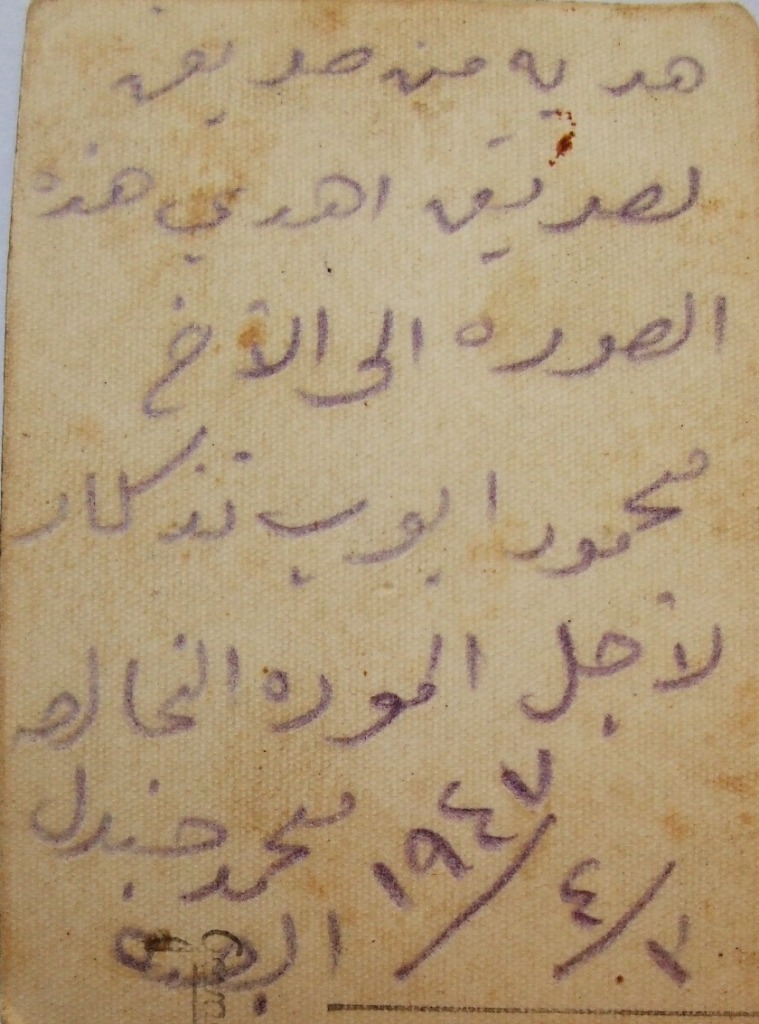 هديه من صديق
لصديق اهدي هذه
الصوره الى الأخ
محمود ايوب تذكار
لأجل الموده الخالصه
محمد جندل
١٩٤٧/٤/